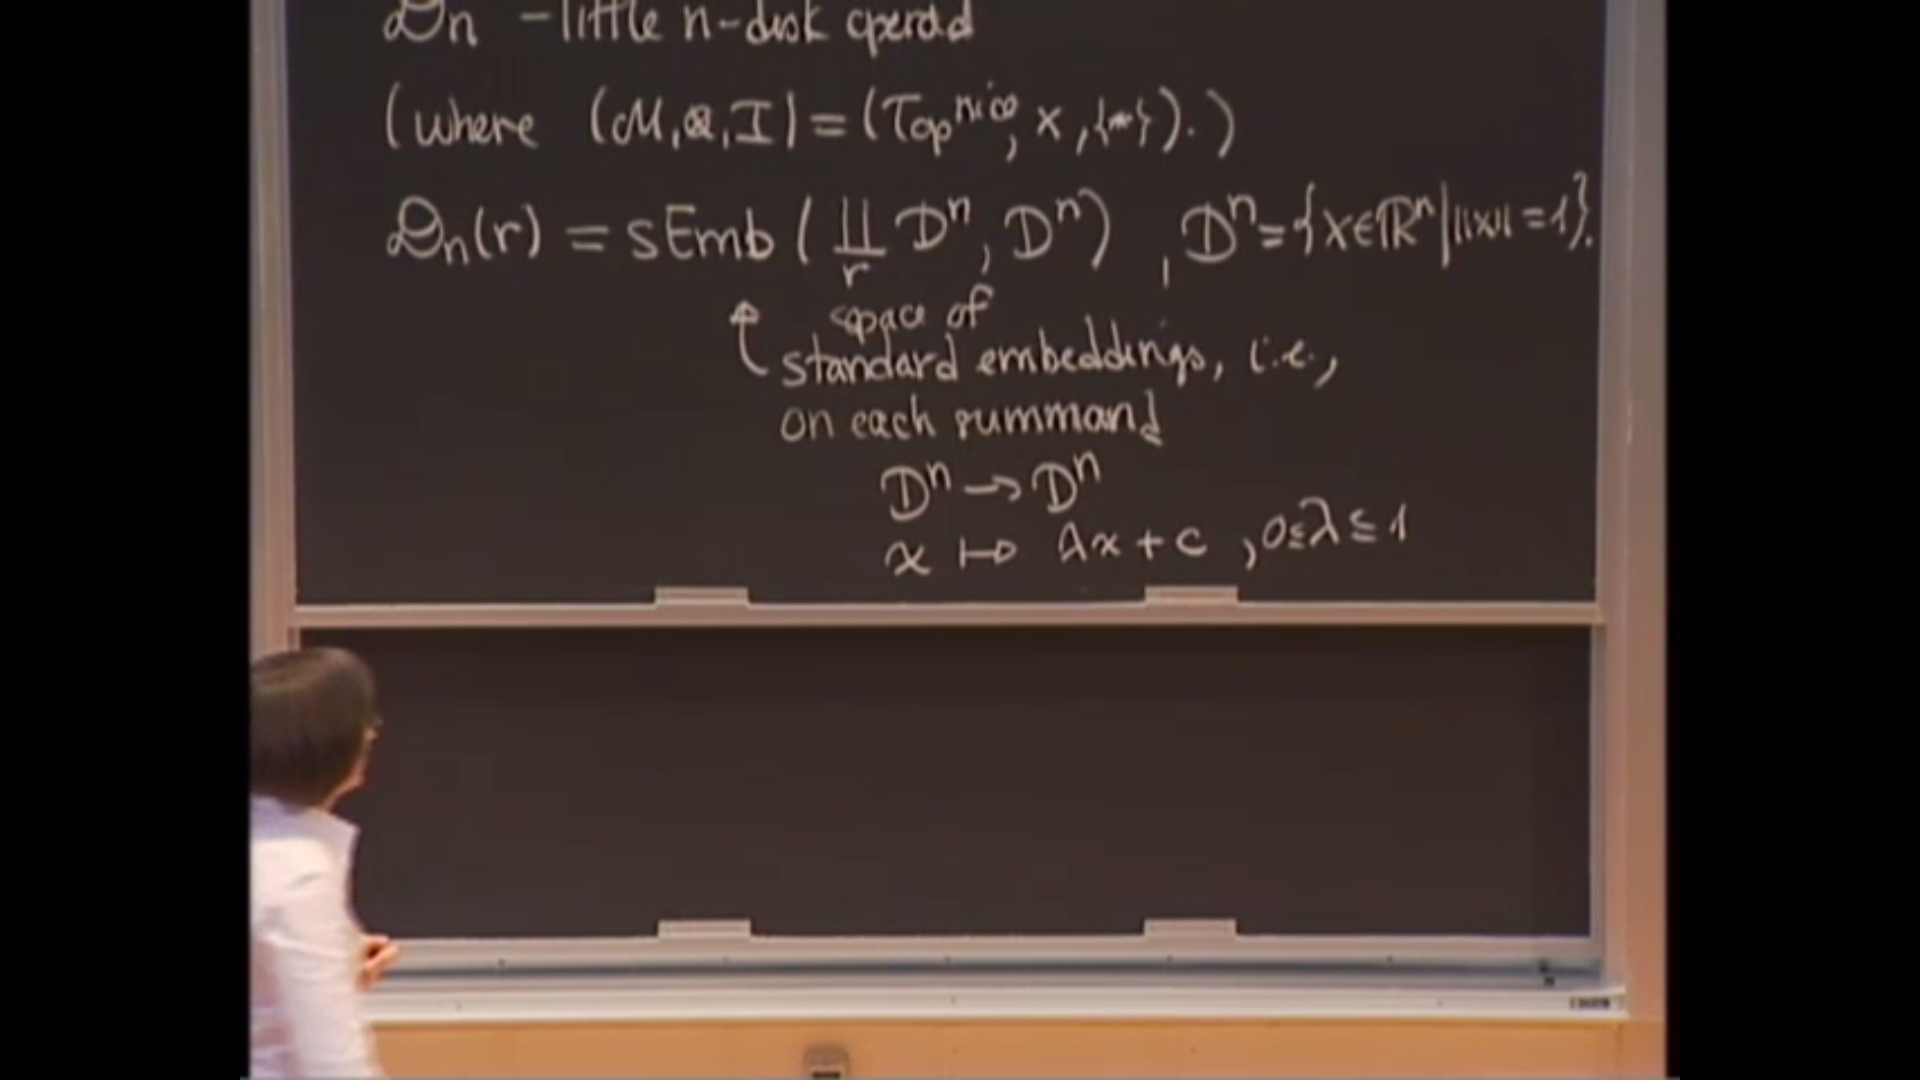 𝒟n – little n-disk operad
(where (ℳ,⊗,I) = (Top^nice, ×, {*}).)
𝒟n(r) = sEmb(∐_r Dⁿ, Dⁿ), Dⁿ = {x∈ℝⁿ | ||x|| = 1}.
space of
standard embeddings, i.e.,
on each summand
Dⁿ → Dⁿ
x ↦ λx + c, 0≤λ≤1